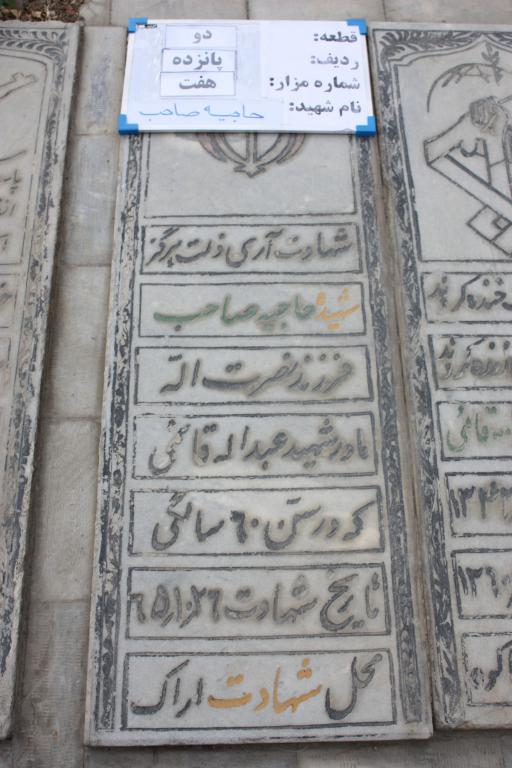 قطعه: دو
ردیف: پانزده
شماره مزار: هفت
نام شهید: حاجیه صاحب
شهادت آری ذلت هرگز
شهیده حاجیه صاحب
فرزند نصرت اله
مادر شهید عبداله قائمی
که در سن ٦٠ سالگی
تاریخ شهادت ٦٥/١٠/٢٦
محل شهادت اراک
قائمی